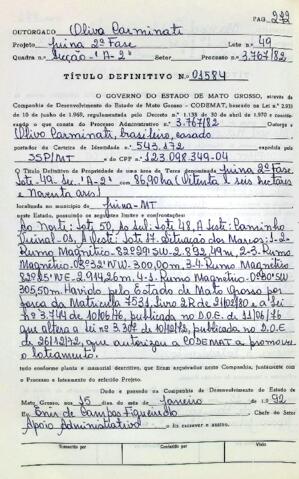 PAG. 232
OUTORGADO Olivo Carminati
Projeto Juina 2ª Fase Lote n.º 49
Quadra n.º Secção "A-2" Setor Processo 3.767/82
TÍTULO DEFINITIVO N.º 01584
O GOVERNO DO ESTADO DE MATO GROSSO, através da
Companhia de Desenvolvimento do Estado de Mato Grosso - CODEMAT, baseado na Lei n.º 2.931
de 10 de junho de 1969, regulamentado pelo Decreto n.º 1.138 de 30 de abril de 1970 e consoante
o que consta do Processo Administrativo n.º 3.767/82 Outorga a
Olivo Carminati, brasileiro, casado
portador da Carteira de Identidade n.º 543.172 expedida pela
SSP/MT e do CPF n.º 123.098.349-04
O Título Definitivo de Propriedade de uma área de Terra denominada Juina 2ª Fase,
Lote-49, Sec. "A-2" com 86,90 ha (Oitenta e seis hectares
e Noventa ares)
localizada no município de Juina-MT
neste Estado, possuindo os seguintes limites e confrontações:
Ao Norte: Lote 50, Ao Sul: Lote 48, A Leste: Caminho
Vicinal-03, A Oeste: Lote 17. Situação dos Marcos: 1-2
Rumo Magnético 82º09'SW-2.892,49m, 2-3. Rumo
Magnético-08º32'NW-300,00m, 3-4 Rumo Magnético
82º25'NE-2.914,26m, 4-1. Rumo Magnético-
305,50m. Havido pelo Estado de Mato Grosso por
força da Matrícula 7531, livro 2R de 21/02/80. A lei
nº 3.744 de 10/06/76, publicada no D.O.E. de 11/06/76
que altera a lei nº 3.307 de 10/12/72, publicada no D.O.E.
de 26/12/72, que autorizou a CODEMAT a promover
o loteamento.
tudo conforme planta e memorial descritivo, que ficam arquivados nesta Companhia, juntamente com
o Processo e loteamento do referido Projeto.
Dado e passado na Companhia de Desenvolvimento do Estado de
Mato Grosso, aos 15 dias do mês de Janeiro de 19 92
Eu Enir de Campos Figueiredo Chefe do Setor
Apoio Administrativo fiz escrever e assino.
Transcrito por Conferido por Visto